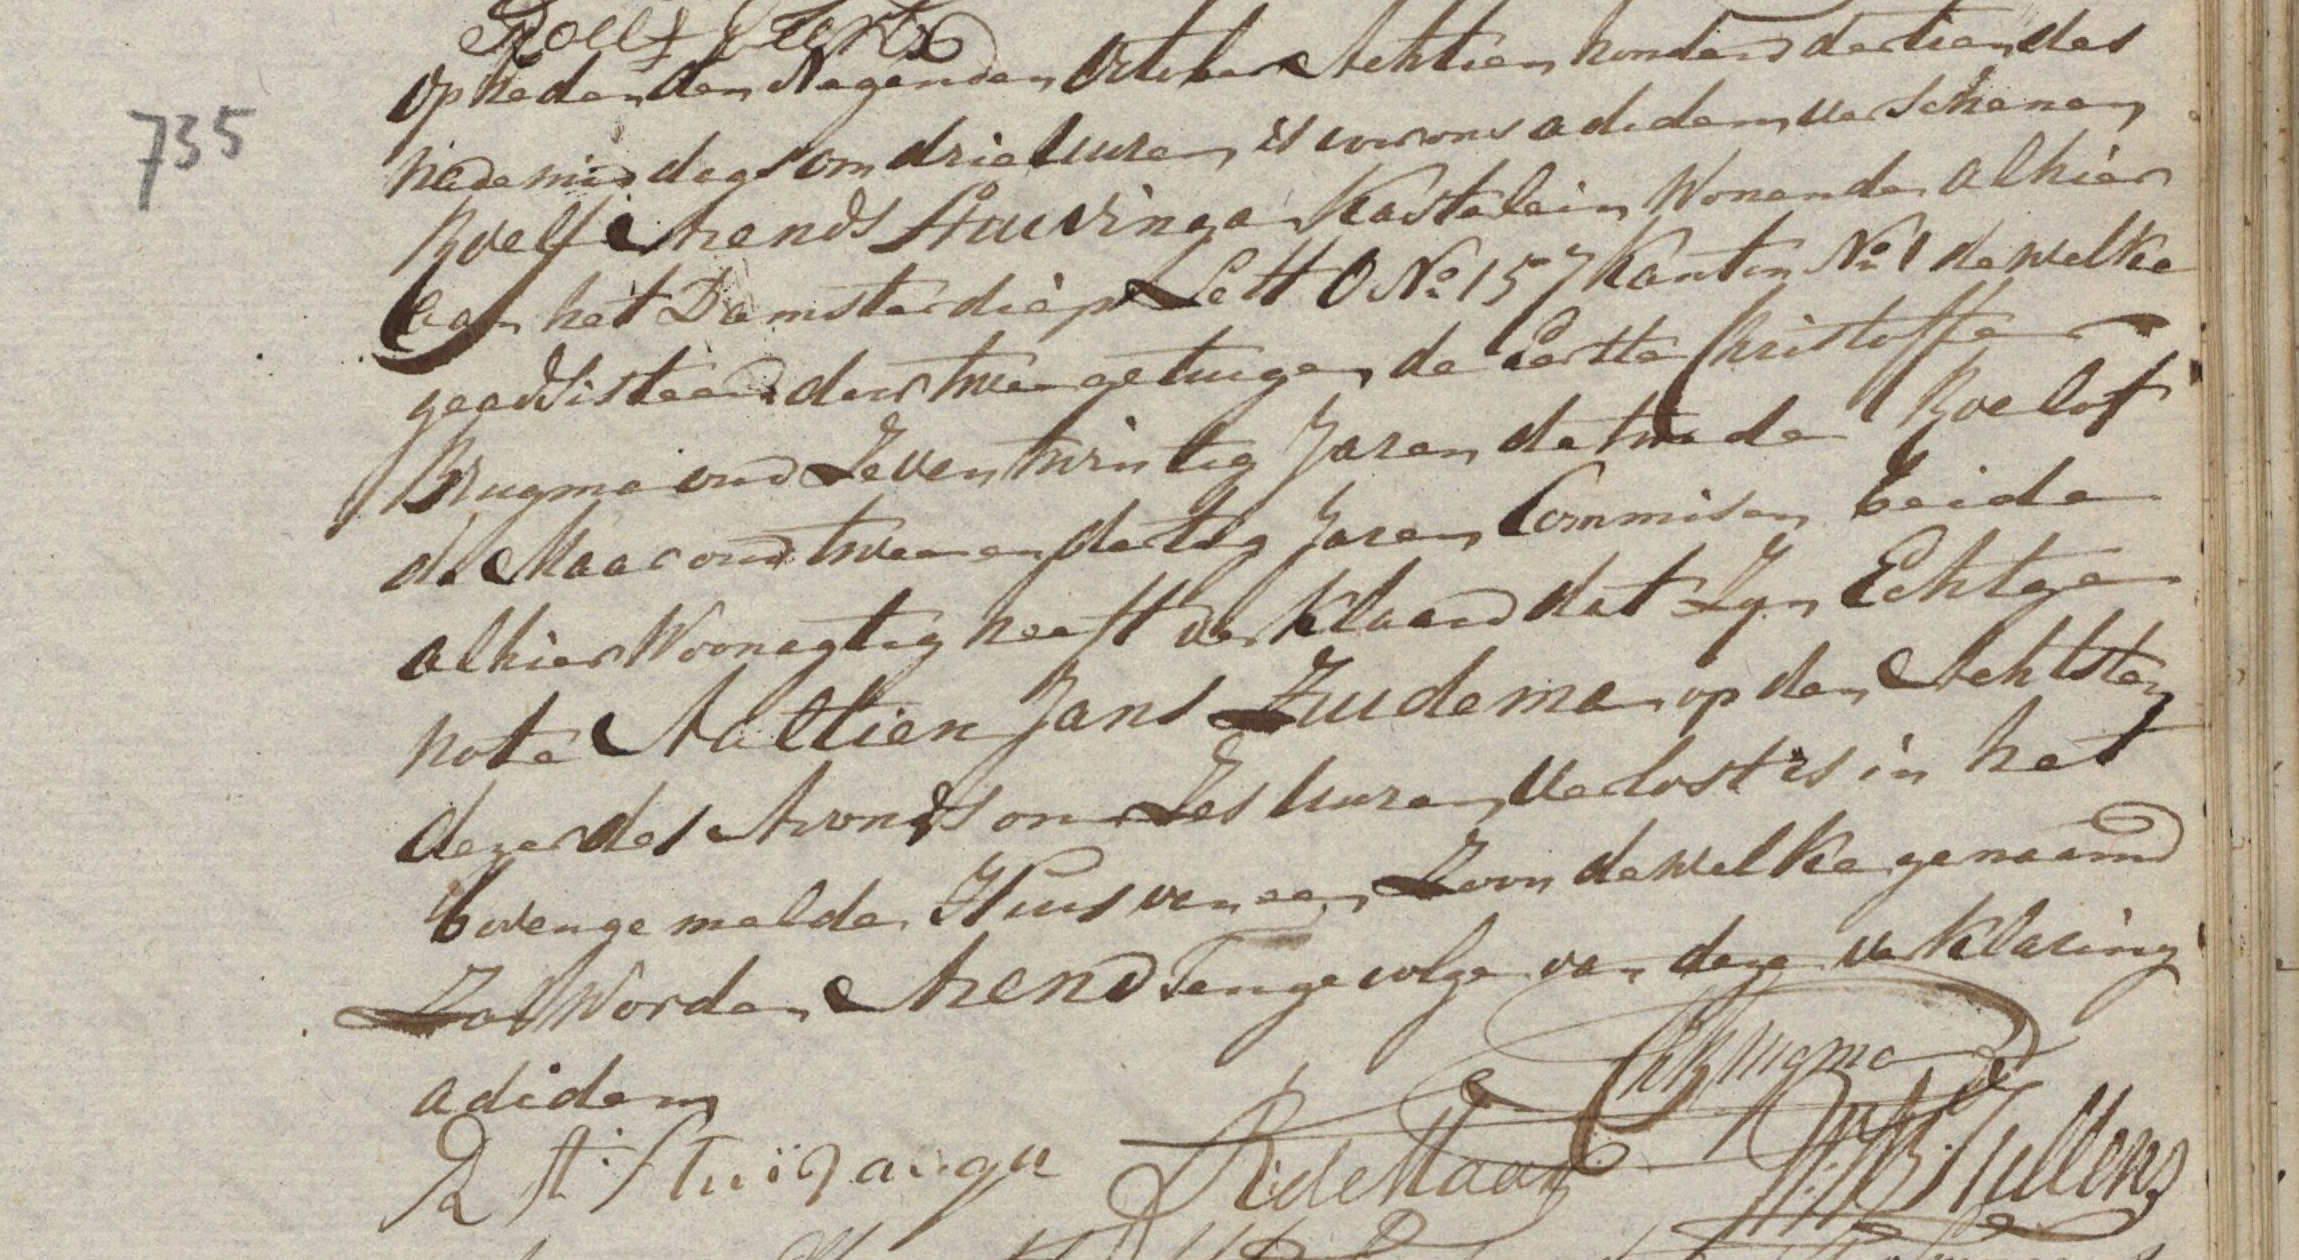 Roelf Geerts
735
Op heden den Negenden October Achtien honderd dertien des
nademiddags om drie uuren is voor ons adidem verschenen
Roelf Arends Stuivinga Kastelein Wonende alhier
aan het Damsterdiep Lett O No 157 Kanton No 1 dewelke
geadsisteerd door twee getuigen de eerste Christoffer
Brugma oud Zeven twintig Jaren de twede Roelof
de Maar oud twee en dertig Jaren Commisen beide
alhier Woonagtig heeft verklaard dat Zyn Echtge
note Aaltien Jans Zuidema op den Achtsten
dezer des Avonds om Zes uuren verlost is in het
bovengemelde Huis van een Zoon dewelke genaamd
Zal Worden Arend Ten gevolge van deze verklaring
adidem
Ch Brugma
R de Maar